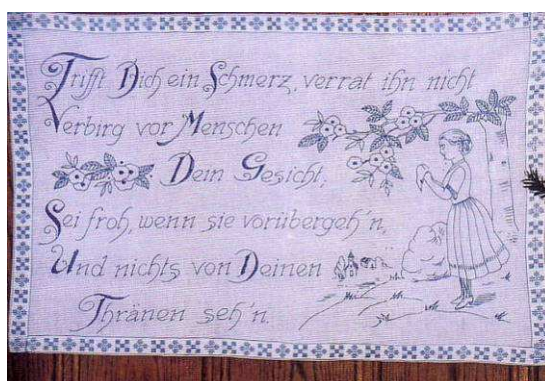 Trifft Dich ein Schmerz, verrat ihn nicht
Verbirg vor Menschen
Dein Gesicht;
Sei froh, wenn sie vorübergeh'n,
Und nichts von Deinen
Thränen seh'n.